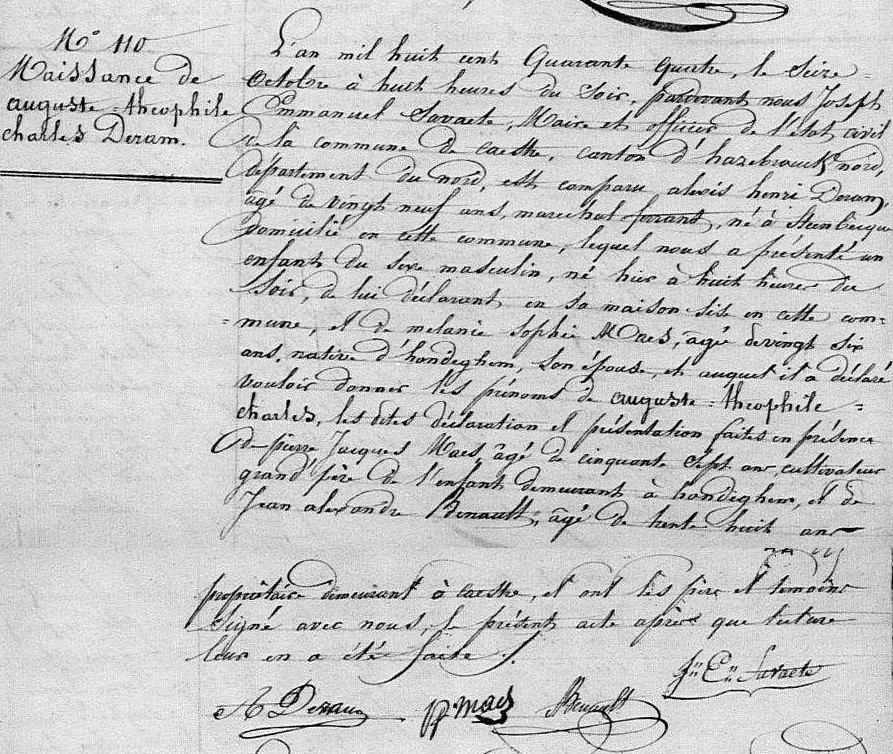 N° 110
Naissance de
auguste = theophile
charles Deram.
L'an mil huit cent Quarante quatre, le Seize =
Octobre à huit heures du Soir, pardevant nous Joseph
Emmanuel Savaete, Maire et officier de l'état civil
de la commune de caestre, canton d'hazebrouck nord,
département du nord, est comparu alexis henri Deram,
âgé de vingt neuf ans, marechal ferrant, né à Steenbecque
Domicilié en cette commune, lequel nous a présenté un
enfant du sexe masculin, né hier à huit heures du
Soir, de lui déclarant en sa maison sise en cette com=
=mune, et de melanie Sophie Maes, âgée de vingt six
ans, native d'hondeghem, son épouse, et auquel il a déclaré
vouloir donner les prénoms de auguste = theophile =
charles, les dites déclaration et présentation faites en présence
de pierre Jacques Maes âgé de cinquante sept ans cultivateur
grand'père de l'enfant demeurant à hondeghem, et de
Jean alexandre Benault, âgé de trente huit ans
propriétaire demeurant à caestre, et ont les père et témoins
Signé avec nous, le présent acte après que lecture
leur en a été faite ./.
Jh Em Savaete
A Deram
PJ maes
Benault